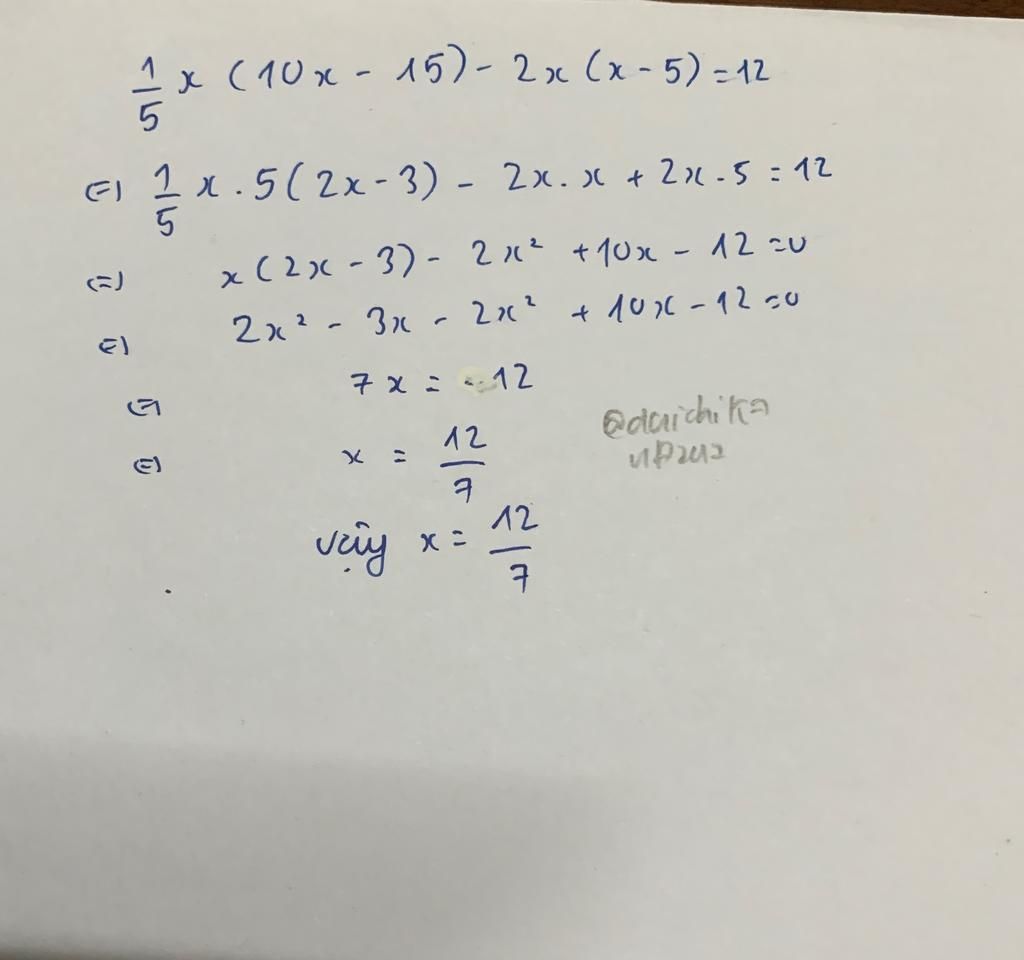 1/5 x (10x - 15) - 2x (x - 5) = 12
(=) 1/5 x . 5 (2x - 3) - 2x . x + 2x . 5 = 12
(=) x (2x - 3) - 2x² + 10x - 12 = 0
(=) 2x² - 3x - 2x² + 10x - 12 = 0
(=) 7x = 12
(=) x = 12/7
vậy x = 12/7